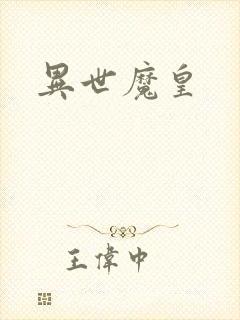 異世魔皇
王偉中